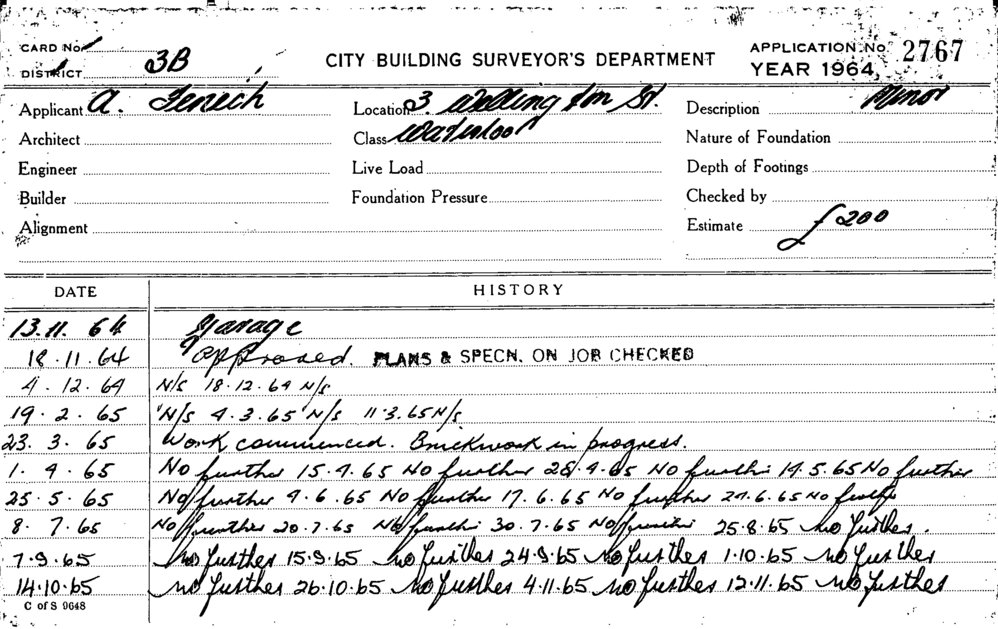 CARD No
DISTRICT 3B
CITY BUILDING SURVEYOR'S DEPARTMENT
APPLICATION No. 2767
YEAR 1964
Applicant A. Fenech
Location 3 Wellington St.
Description Minor
Architect
Class Waterloo
Nature of Foundation
Engineer
Live Load
Depth of Footings
Builder
Foundation Pressure
Checked by
Alignment
Estimate £200
DATE HISTORY
13.11.64 Garage
18.11.64 approved. PLANS & SPECN. ON JOB CHECKED
4.12.64 N/S 18.12.64 N/S
19.2.65 N/S 4.3.65 N/S 11.3.65 N/S
23.3.65 Work commenced. Brickwork in progress.
1.4.65 No further 15.4.65 No further 28.4.65 No further 14.5.65 No further
25.5.65 No further 4.6.65 No further 17.6.65 No further 24.6.65 No further
8.7.65 No further 20.7.65 No further 30.7.65 No further 25.8.65 no further.
7.9.65 no further 15.9.65 no further 24.9.65 no further 1.10.65 no further
14.10.65 no further 26.10.65 no further 4.11.65 no further 12.11.65 no further
C of S 9648